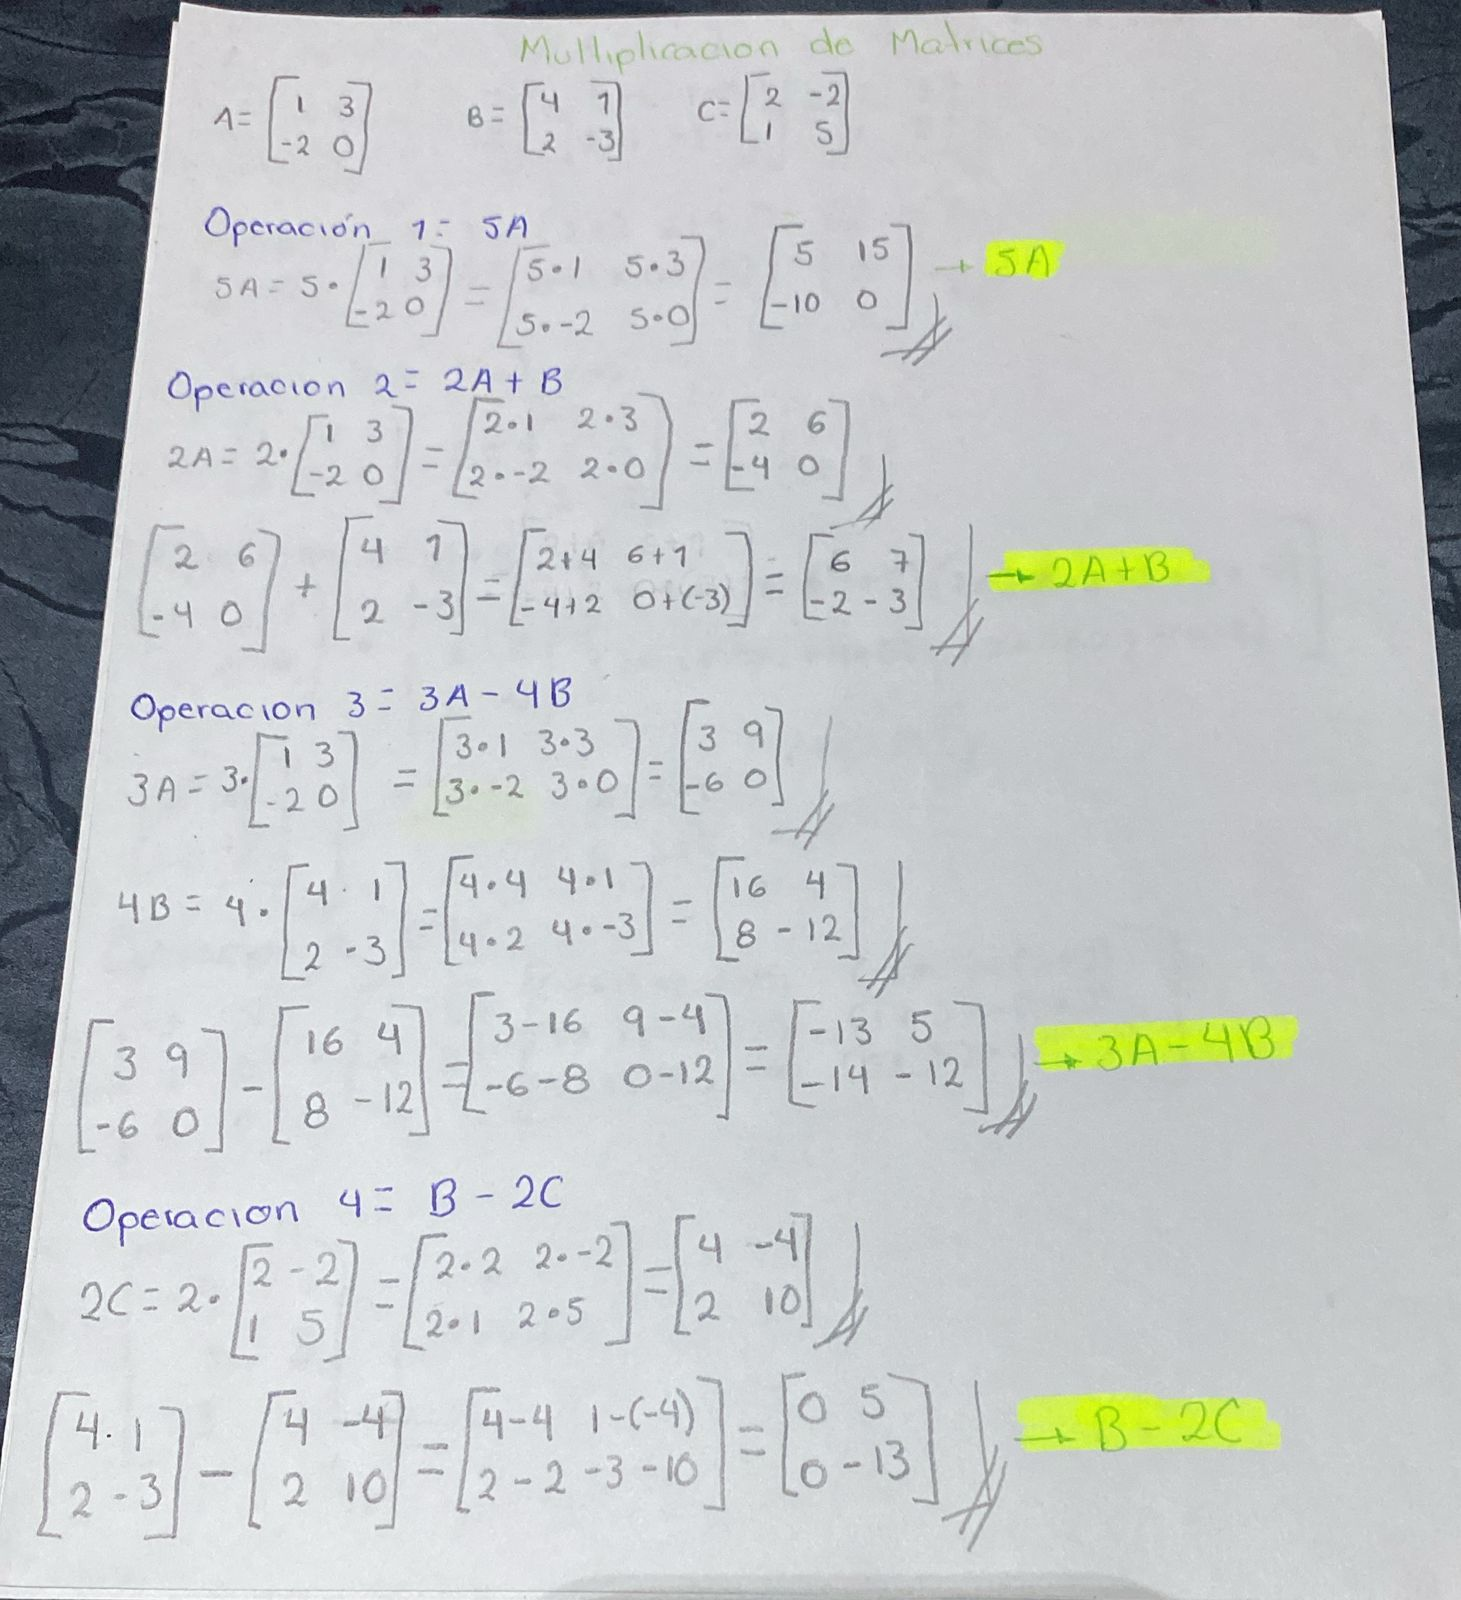 Multiplicacion de Matrices
A = [1 3; -2 0] B = [4 1; 2 -3] C = [2 -2; 1 5]
Operación 1 = 5A
5A = 5 • [1 3; -2 0] = [5•1 5•3; 5•-2 5•0] = [5 15; -10 0] → 5A
Operacion 2 = 2A + B
2A = 2 • [1 3; -2 0] = [2•1 2•3; 2•-2 2•0] = [2 6; -4 0]
[2 6; -4 0] + [4 1; 2 -3] = [2+4 6+1; -4+2 0+(-3)] = [6 7; -2 -3] → 2A+B
Operacion 3 = 3A - 4B
3A = 3 • [1 3; -2 0] = [3•1 3•3; 3•-2 3•0] = [3 9; -6 0]
4B = 4 • [4 1; 2 -3] = [4•4 4•1; 4•2 4•-3] = [16 4; 8 -12]
[3 9; -6 0] - [16 4; 8 -12] = [3-16 9-4; -6-8 0-12] = [-13 5; -14 -12] → 3A-4B
Operacion 4 = B - 2C
2C = 2 • [2 -2; 1 5] = [2•2 2•-2; 2•1 2•5] = [4 -4; 2 10]
[4 1; 2 -3] - [4 -4; 2 10] = [4-4 1-(-4); 2-2 -3-10] = [0 5; 0 -13] → B-2C